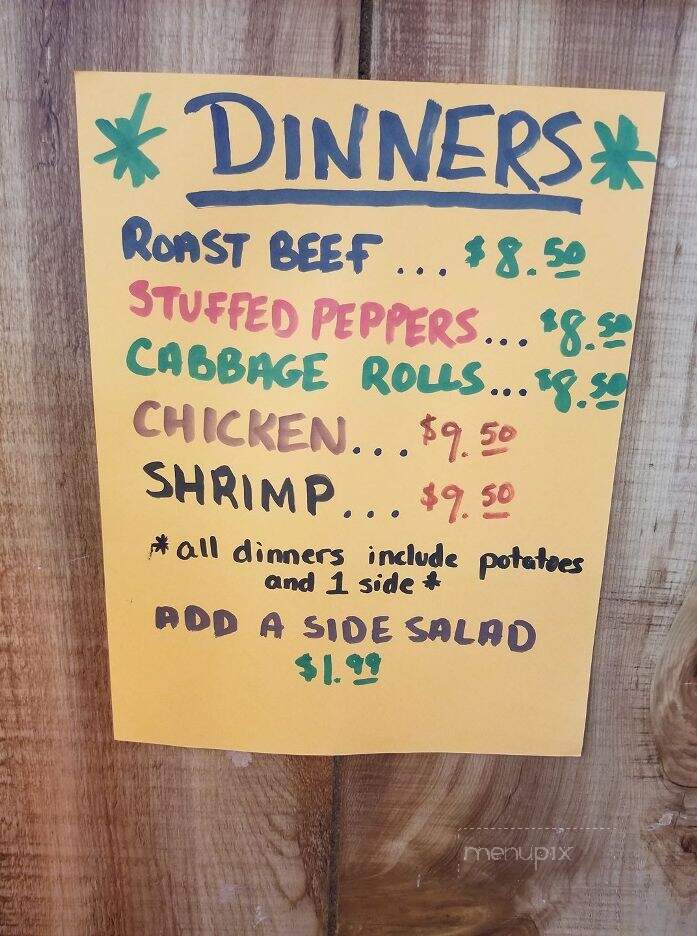 * DINNERS *
ROAST BEEF ... $8.50
STUFFED PEPPERS... $8.50
CABBAGE ROLLS... $8.50
CHICKEN... $9.50
SHRIMP... $9.50
*all dinners include potatoes
and 1 side*
ADD A SIDE SALAD
$1.99
menupix